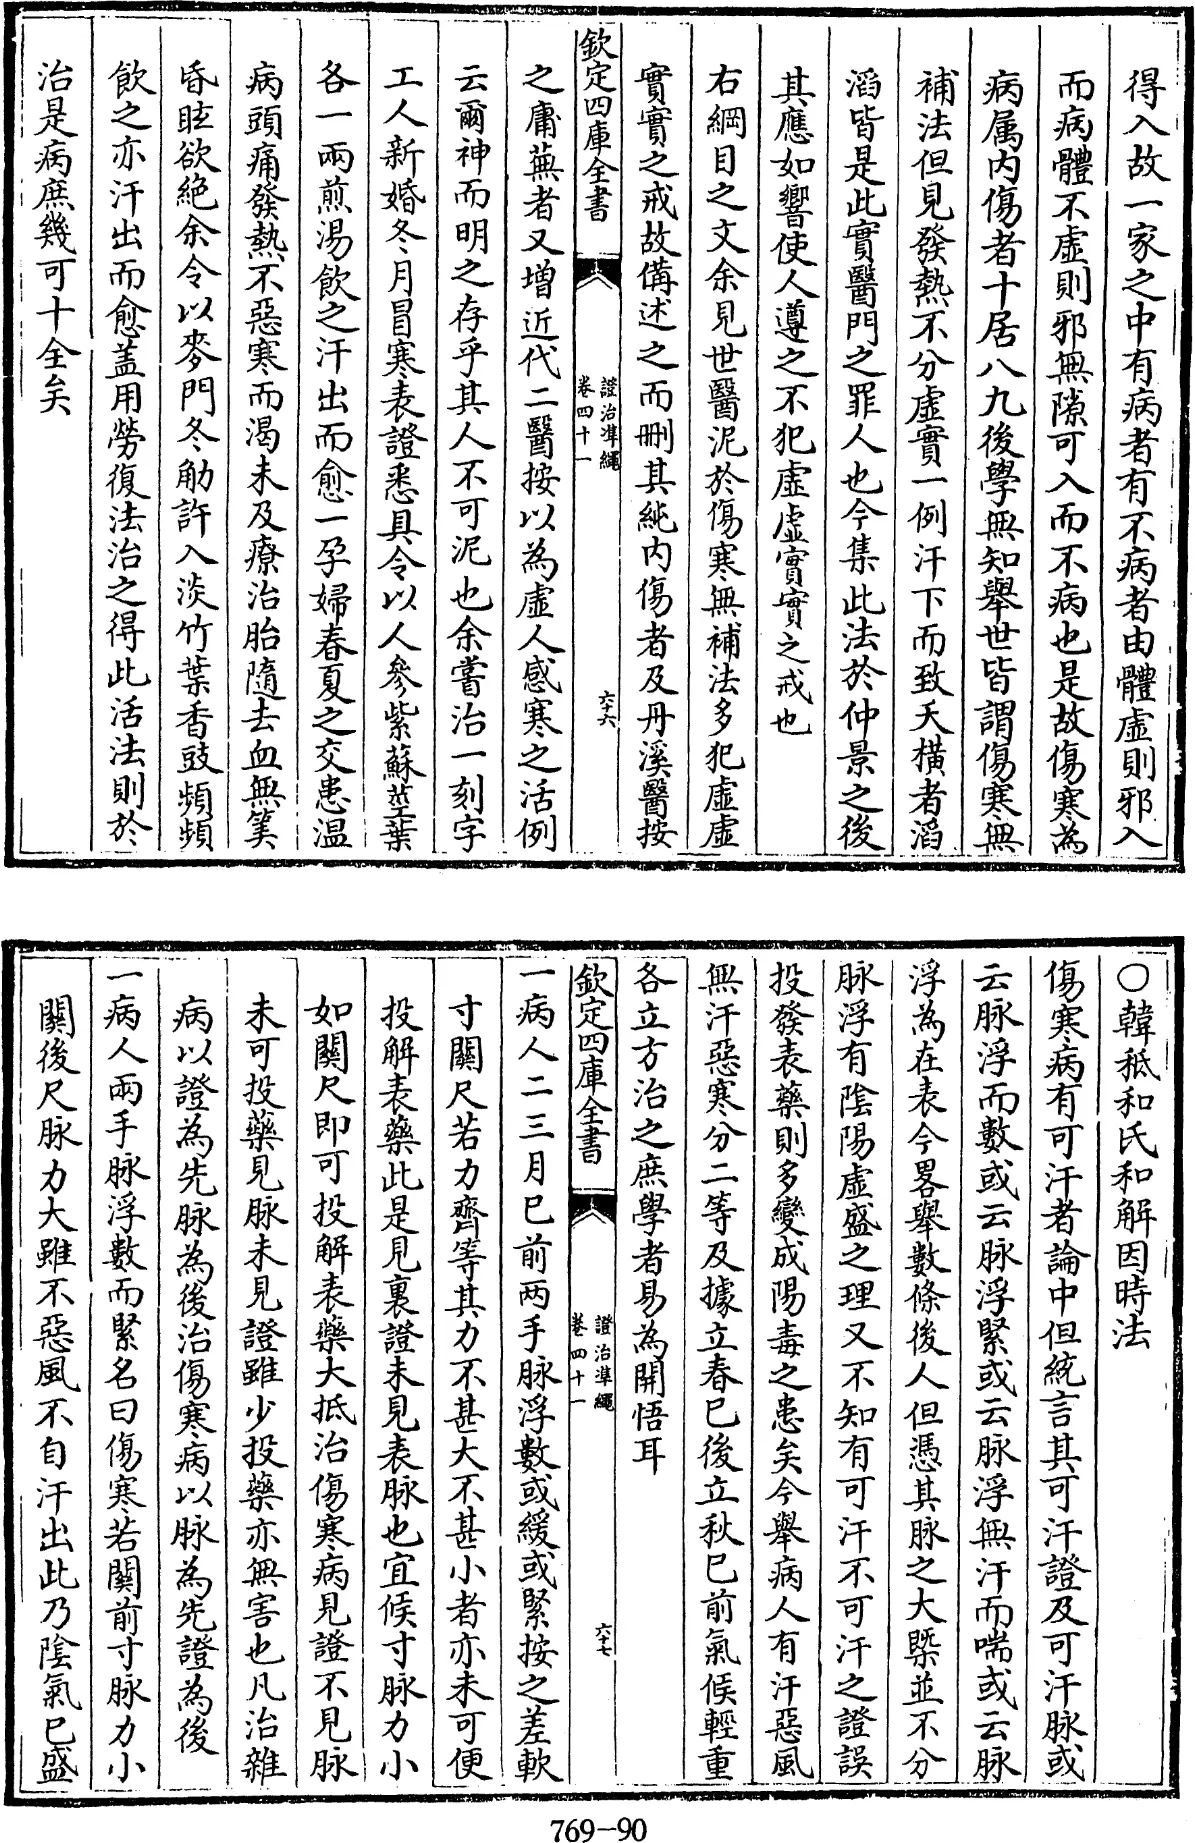 得入故一家之中有病者有不病者由體虛則邪入
而病體不虛則邪無隙可入而不病也是故傷寒為
病属内傷者十居八九後學無知舉世皆謂傷寒無
補法但見發熱不分虛實一例汗下而致夭橫者滔
滔皆是此實醫門之罪人也今集此法於仲景之後
其應如響使人遵之不犯虛虛實實之戒也
右綱目之文余見世醫泥於傷寒無補法多犯虛虛
實實之戒故備述之而刪其純内傷者及丹溪醫按
欽定四庫全書
證治準繩
卷四十一
六十六
之庸蕪者又增近代二醫按以為虛人感寒之活例
云爾神而明之存乎其人不可泥也余嘗治一刻字
工人新婚冬月冒寒表證悉具令以人參紫蘇莖葉
各一兩煎湯飲之汗出而愈一孕婦春夏之交患温
病頭痛發熱不惡寒而渴未及療治胎隨去血無筭
昏眩欲絶余令以麥門冬觔許入淡竹葉香豉頻頻
飲之亦汗出而愈盖用勞復法治之得此活法則於
治是病庶幾可十全矣
○韓秪和氏和解因時法
傷寒病有可汗者論中但統言其可汗證及可汗脉或
云脉浮而數或云脉浮緊或云脉浮無汗而喘或云脉
浮為在表今畧舉數條後人但憑其脉之大槩並不分
脉浮有陰陽虛盛之理又不知有可汗不可汗之證誤
投發表藥則多變成陽毒之患矣今舉病人有汗惡風
無汗惡寒分二等及據立春已後立秋已前氣候輕重
各立方治之庶學者易為開悟耳
欽定四庫全書
證治準繩
卷四十一
六十七
一病人二三月已前两手脉浮數或緩或緊按之差軟
寸關尺若力齊等其力不甚大不甚小者亦未可便
投解表藥此是見裏證未見表脉也宜候寸脉力小
如關尺即可投解表藥大抵治傷寒病見證不見脉
未可投藥見脉未見證雖少投藥亦無害也凡治雜
病以證為先脉為後治傷寒病以脉為先證為後
一病人兩手脉浮數而緊名曰傷寒若關前寸脉力小
關後尺脉力大雖不惡風不自汗出此乃陰氣已盛
769-90